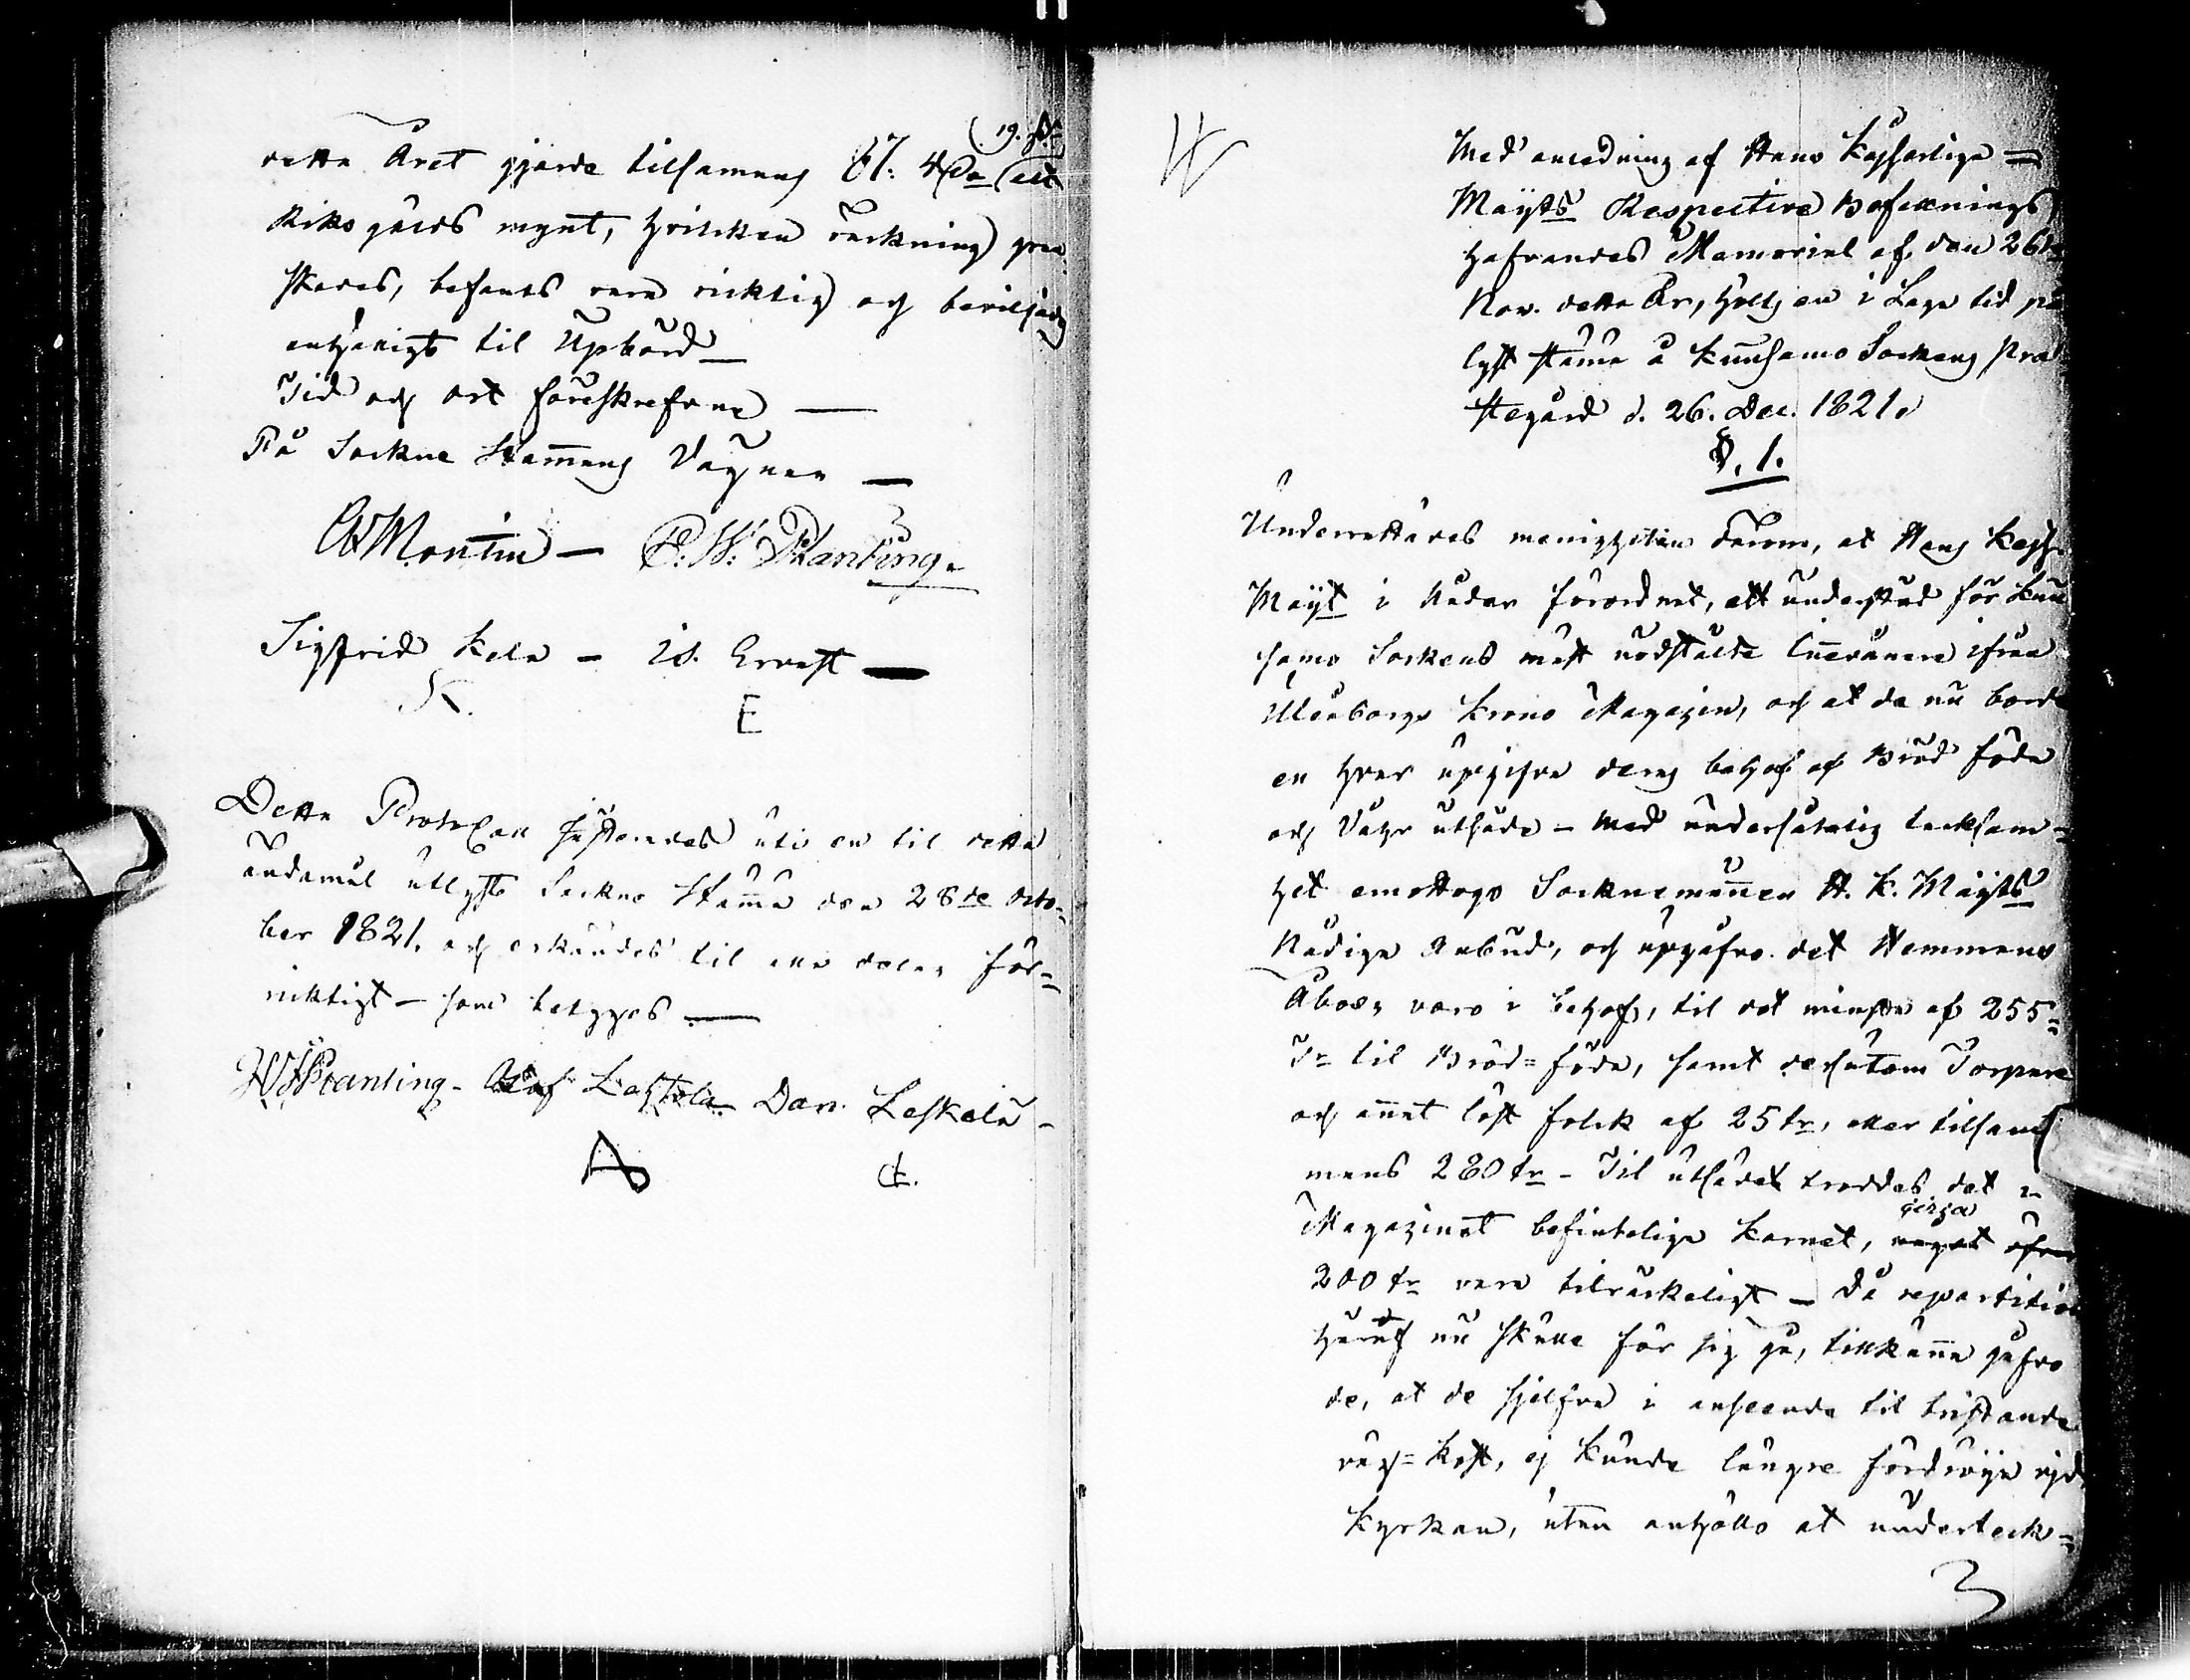 (19. 
detta Året gjorde tilsammans 67: 4 
Riksgälds mynt, hvilcken räkning gran
skades, befants vara riktig och beviljades
enhälligt til Upbörd —
Tid och ort föreskrefvne —
På Sockne Stämmans Vägnar —
Montin — P. W. Planting.
Sigfrid Kela — Is. Ervast —
K. E
Detta Protocoll justerades uti en til detta
ändamål utlyst Sockne Stämma den 28de Octo=
ber 1821, och erkändes til alla delar för=
riktigt — som betygas —
Planting. Olof Lastola Dan. Leskelä -
A
Med anledning af Hans Kejserliga
Maÿts Respective Befallnings
hafvandes Memorial af den 26te
Nov. detta År, hölls en i Laga tid på
lyst stämma å Kuusamo Sockens Präs
tegård d. 26. Dec. 1821.
§. 1.
Underrättades menigheten derom, at Hans Kejs.
Maÿt i Nåder förordnat, ett understöd för Kuu
samo Sockens mäst nödstälde Innevånare ifrån
Uleåborgs Krono Magazin, och at de nu borde
en hvar upgifva deras behof af Bröd föda
och Vahr utsäde — Med undersåtelig tacksam=
het emottogo Sockne männen H. K. Maÿts
Nådiga Anbud, och upgåfvo det Hemmans
Åboer voro i behof, til det minsta af 255=
Tr til Bröd=föda, samt desutom Torpare
och annat löst folck af 25 tr, eller tilsam
mans 280 tr — Til utsädet troddes det i
Magazinet befinteliga Kornet, cirça
200 tr vara tilräckeligt — Då repartition
häraf nu skulle för sig gå, tillkänna gåfvo
de, at de sjelfva i anseende til tristande
väg=kost, ej kunde längre fördröja vid
Kyrkan, utan anhöllo at underteck=